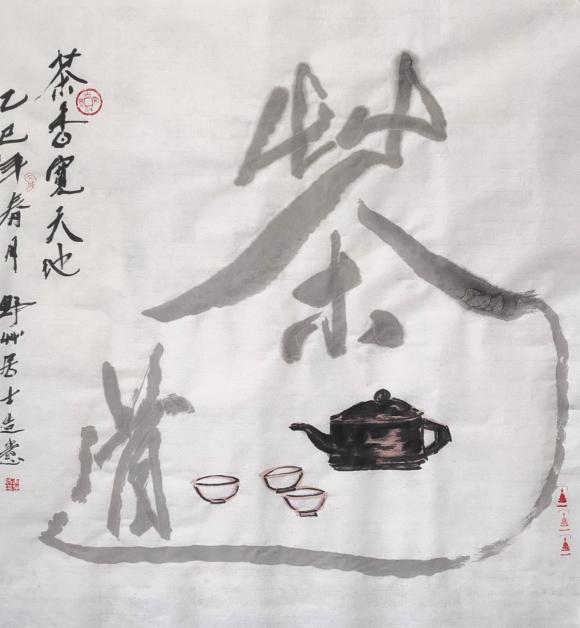 茶
清
茶香寬天地
乙巳年春月 野艸居士造意